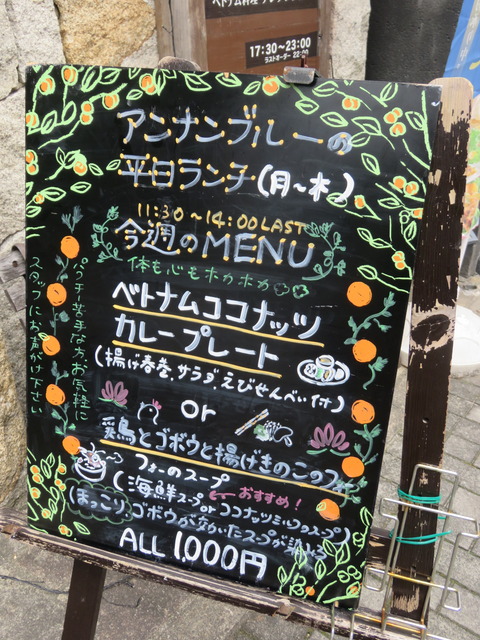 ベトナム料理
17:30~23:00
ラストオーダー 22:00
アンナンブルーの
平日ランチ(月~木)
11:30~14:00 LAST
今週のMENU
体も心もホカホカ
ベトナムココナッツ
カレープレート
(揚げ春巻、サラダ、えびせんべい付)
or
鶏とゴボウと揚げきのこのフォー
フォーのスープ
(海鮮スープ or ココナッツミルクのスープ)
←おすすめ!
ほっこりゴボウが
スープが
ALL 1,000円
パクチー苦手な方、お気軽に
スタッフにお声がけ下さい